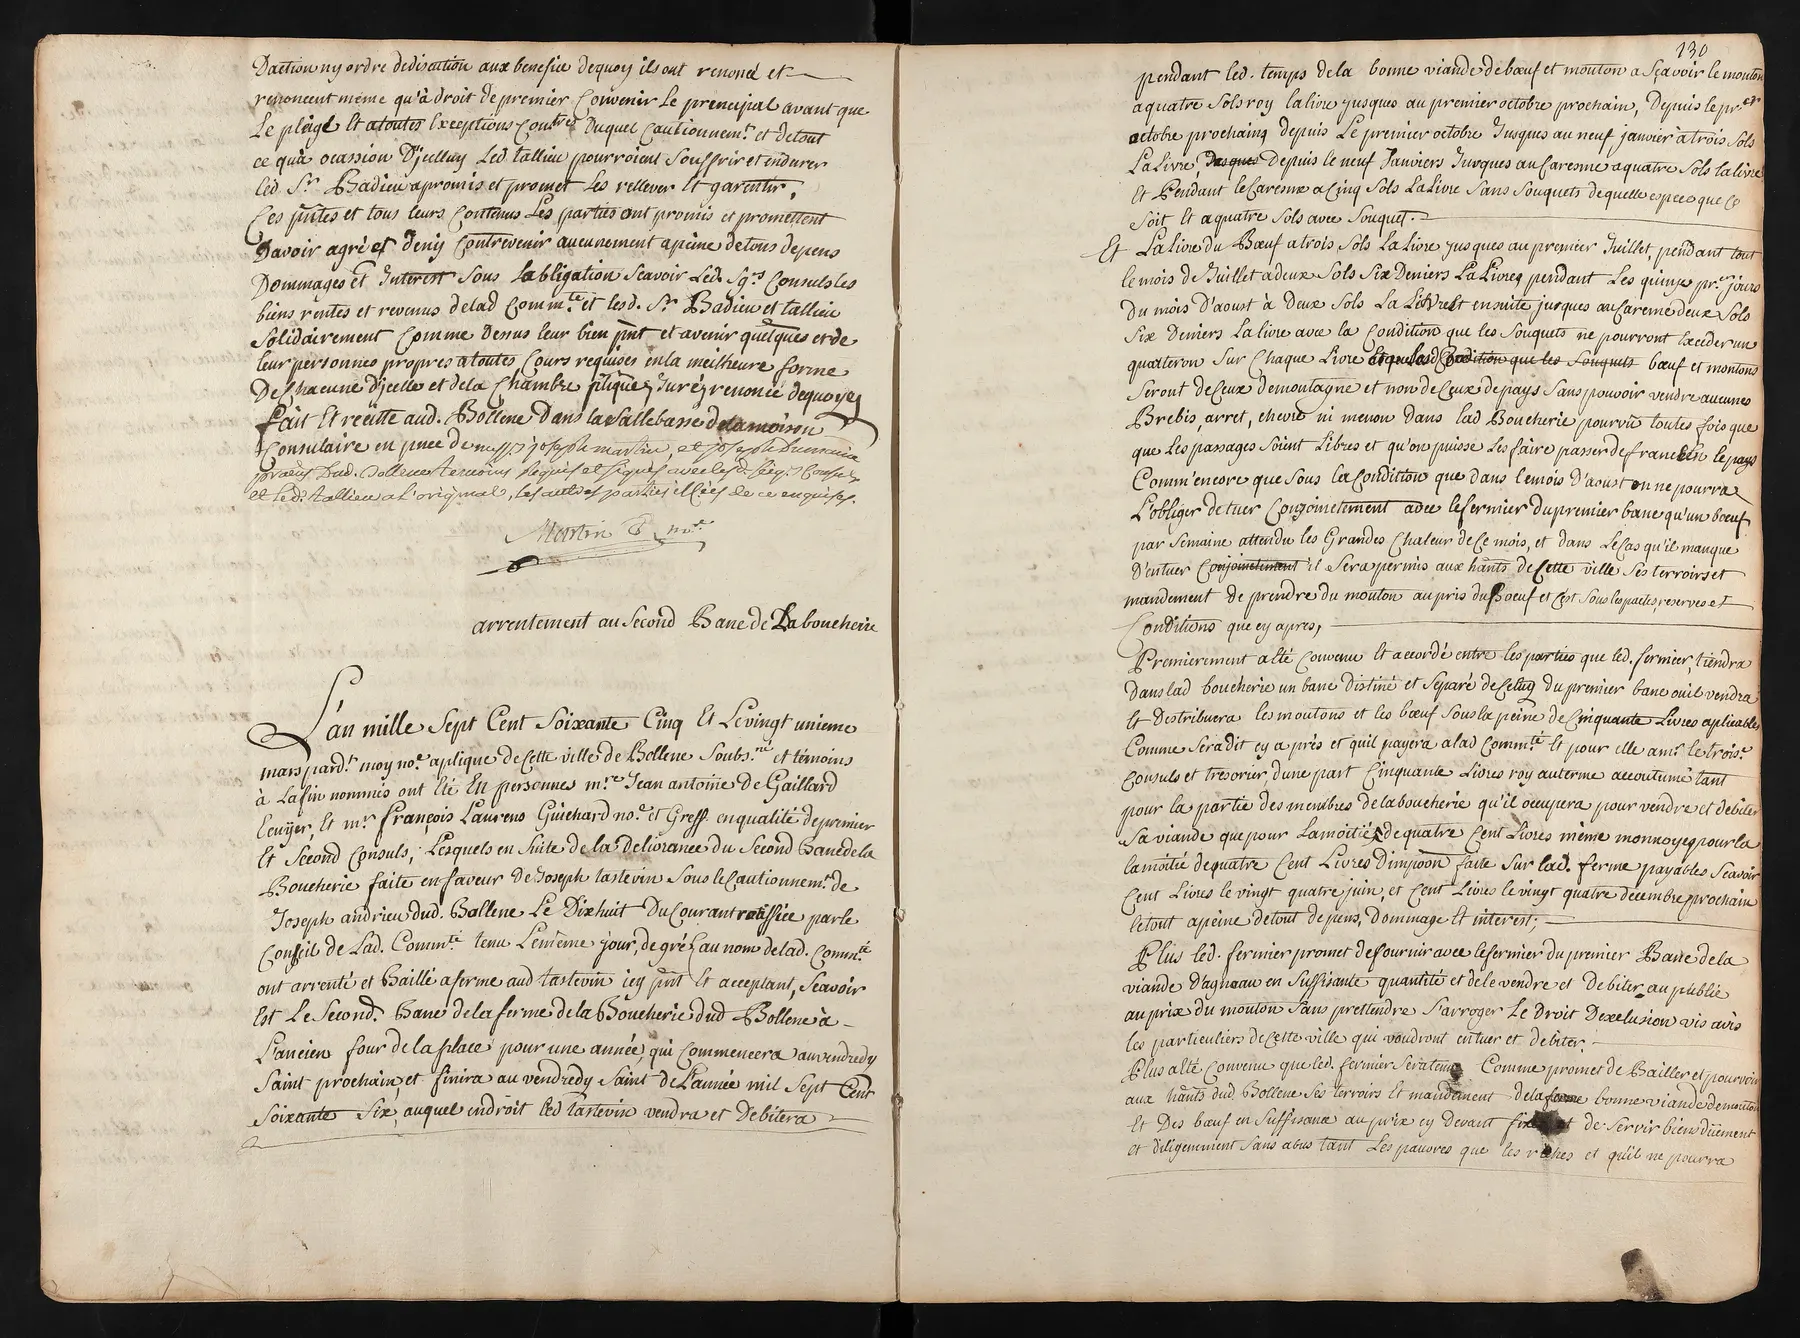 Daction ny ordre dediscution aux benefice dequoy ils ont renoncé et
renoncent même qu'à droit de premier Convenir Le principal avant que
Le pleige Et atoutes Exceptions Contres Duquel Cautionnemt et detout
ce qu'a ocassion D'jcelluy Led tallieu pourroient Souffrir et endurer
led Sr Badieu apromis et promet Les rellever Et garentir,
Ces pntes et tous leurs Contenus Les parties ont promis et promettent
Davoir agré et Deny Contrevenir aucunement apeine detous depens
Dommages et Interest Sous Labligation Scavoir Led. Sgrs Consuls les
biens rentes et revenus delad Commte et lesd. Sr Badieu et tallieu
Solidairement Comme Dessus leur bien pnt et avenir quelques et de
leur personnes propres atoutes Cours requises en la meilheure forme
De Chacune D'jcelle et dela Chambre ptique, Juré, renoncé dequoy
fait Et recitté aud. Bollene Dans la Salle basse de la maison
Consulaire en pnce de joseph martin, et joseph
dud. Bollene temoins Requis et signés avec lesd. Consuls
et Led. tallieu a L'original, les autres parties illées de ce enquises.
Martin nre
arrentement au Second Banc de La boucherie
L'an mille Sept Cent Soixante Cinq Et Le vingt unieme
mars pardt moy nore aplique de Cette ville de Bollene Soubsné et témoins
à Lafin nommés ont Eté En personnes mre Jean antoine De Gaillard
Ecuÿer, Et mr françois Laurens Guichard nore et Greff. en qualité de premier
Et Second Consuls, Lesquels en Suite de la Delivrance du Second Banc de la
Boucherie faite en faveur De Joseph tastevin Sous le Cautionnemt de
Joseph andrieu dud. Bollene Le Dixhuit Du Courant ratiffiée par le
Conseil de Lad. Commte tenu Lemême jour, de gré au nom delad. Commté
ont arrenté et Baillé aferme aud tastevin icy pnt Et acceptant, Scavoir
Est Le Second. Banc de la ferme de la Boucherie dud Bollene à
L'ancien four de la place pour une année, qui Commencera au vendredy
Saint prochain, et finira au vendredy Saint de L'année mil Sept Cent
Soixante Six, auquel endroit Led tastevin vendra et Debitera
130
pendant led. temps de la bonne viande de bœuf et mouton a Scavoir le mouton
aquatre Sols roy La livre jusques au premier octobre prochain, Depuis le pr er
octobre prochaing depuis Le premier octobre Jusques au neuf janvier à trois Sols
La Livre, Jusques Depuis le neuf Janviers Jusques au Caresme aquatre Sols la livre
Et Pendant le Caresme a Cinq Sols La Livre Sans Souquets de quelle espece que Ce
Soit Et aquatre Sols avec Souquet.
Et La Livre du Bœuf a trois Sols La Livre jusques au premier Juillet, pendant tout
le mois de Juillet a deux Sols Six Deniers La Livre, pendant Les quinze pr. jours
Du mois D'aoust à Deux Sols La Livre Et ensuite jusques au Careme deux Sols
Six Deniers La livre avec la Condition que les Souquets ne pourront Excéder un
quarteron Sur Chaque Livre Et que les Condition que les Souquets bœuf et moutons
Seront de Ceux de montagne et non de Ceux de pays Sans pouvoir vendre aucunes
Brebis, arret, chevre ni menon Dans lad Boucherie pourvû toutes fois que
que Les passages Soint Libres et qu'on puisse Les faire passer de france En le pays
Comm'encore que Sous la Condition que dans lemois D'aoust on ne pourra
L'obliger de tuer Conjointement avec le fermier du premier banc qu'un bœuf
par Semaine attendu les Grandes Chaleur de Ce mois, et dans Le Cas qu'il manque
D'entuer Conjointement il Sera permis aux hants de Cette ville Ses terroirs et
mandement de prendre du mouton au pris du Bœuf et C'est Sous les pactes, reserves et
Conditions que cy apres,
Premierement a Eté Convenu Et accordé entre les parties que led. fermier, tiendra
dans lad boucherie un banc Distiné et Separé de Celuy du premier banc ou il vendra
Et Destribuera les moutons et les bœuf Sous la peine de Cinquante Livres aplicables
Comme Sera dit cy après et quil payera a lad Commté Et pour elle a mr le trois.e
Consuls et tresorier, dune part Cinquante Livres roy au terme accoutumé tant
pour la partie des membres de la boucherie qu'il occupera pour vendre et debiter
Sa viande que pour La moitié de quatre Cent Livres même monnoye, pour la
la moitié de quatre Cent Livres D'impoon faite Sur lad. ferme payables Scavoir
Cent Livres le vingt quatre juin, et Cent Livres le vingt quatre decembre prochain
le tout apeine de tout depens, Dommage Et interest;
Plus led. fermier promet de fournir avec le fermier du premier Banc de la
viande D'agneau en Suffisante quantité et de le vendre et Debiter au publie
au prix du mouton Sans prettendre S'arroger Le Droit D'exclusion vis avis
les particuliers de Cette ville qui voudront en tuer et debiter.
Plus a Eté Convenu que led. fermier Sera tenu Comme promet de Bailler et pourvoir
aux hants dud Bollene Ses terroirs Et mandement de la ferme bonne viande de mouton
Et Des bœuf en Suffisance au prix cy Devant fixé et de Servir bien duëment
et diligemment Sans abus tant Les pauvres que les riches et qu'il ne pourra